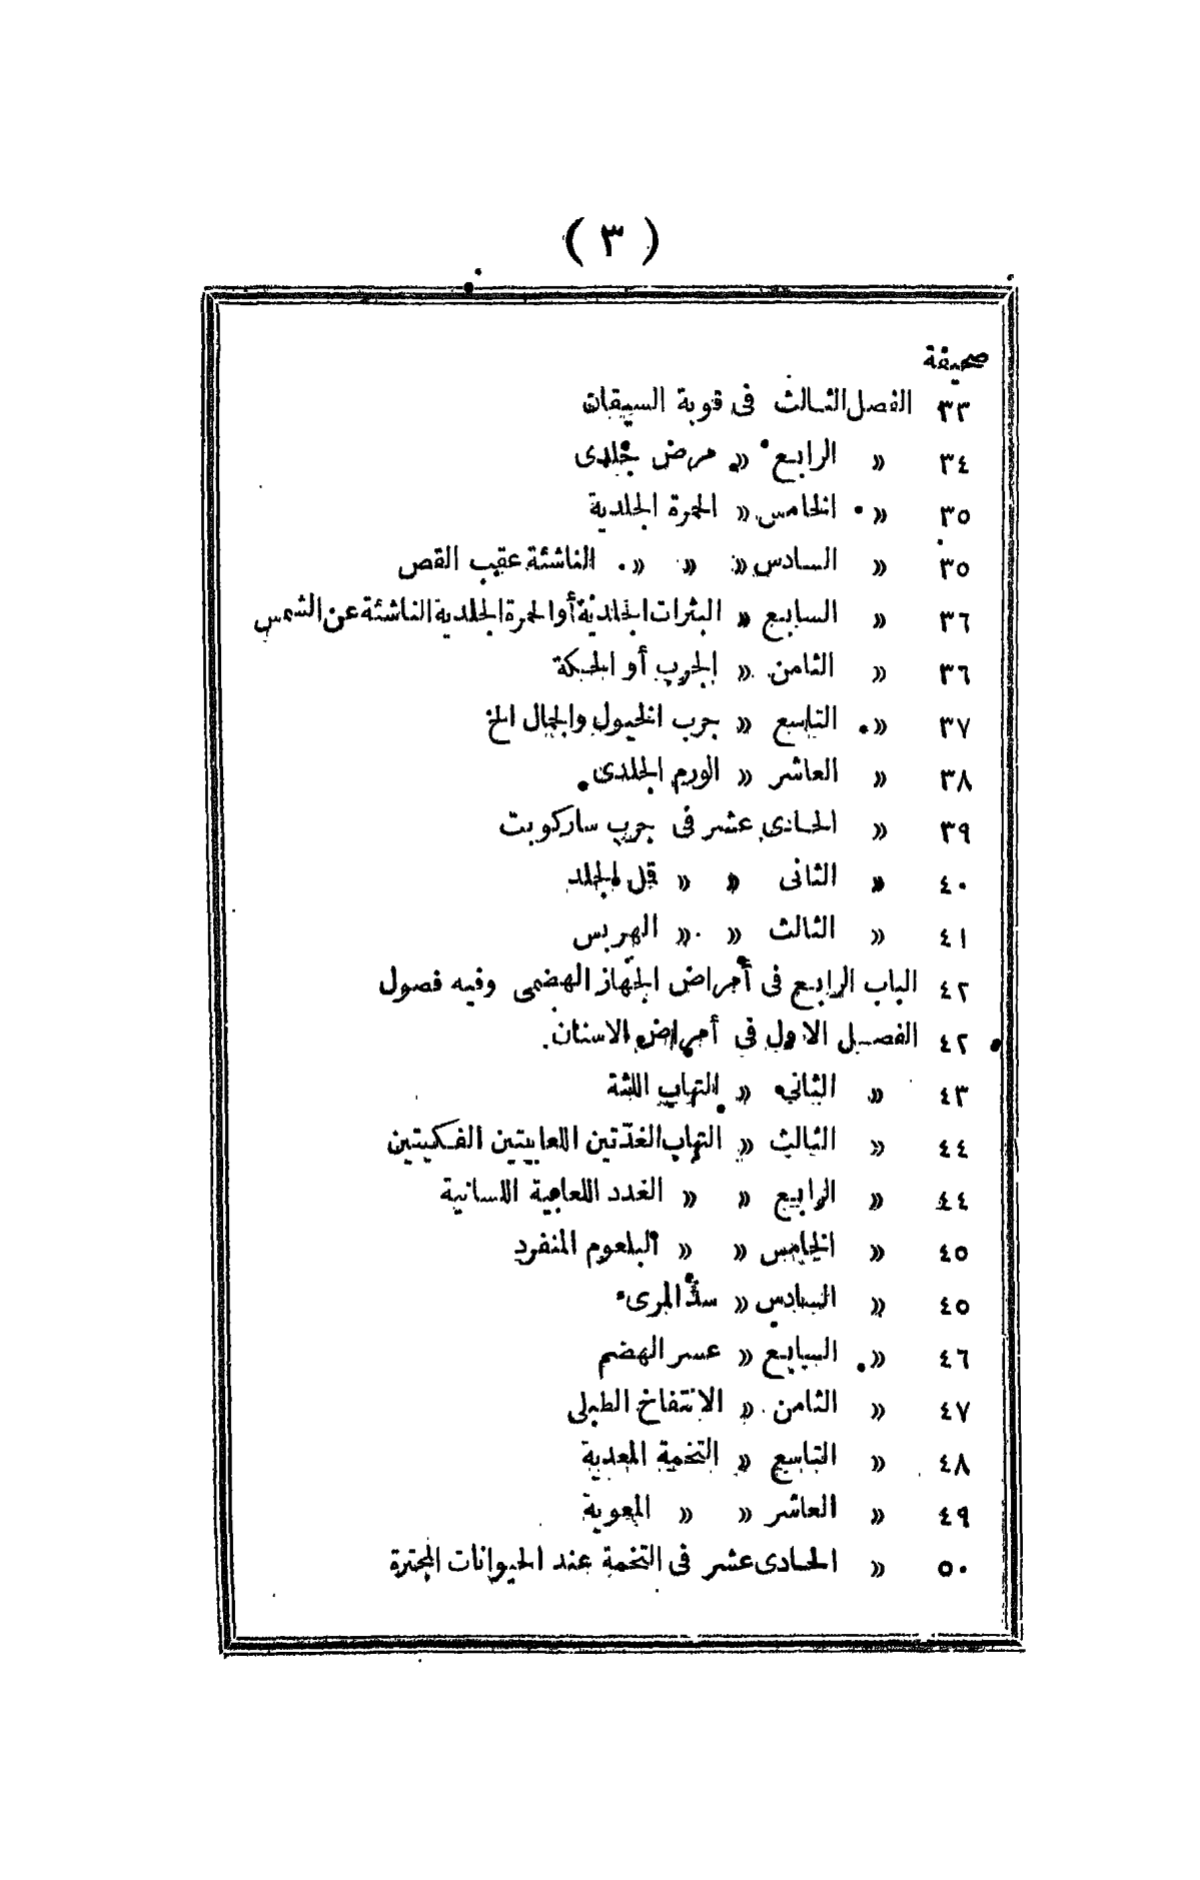 ( ٣ )
صحيفة
٣٣ الفصل الثالث فى قوبة السيقان
٣٤ » الرابع » مرض جلدى
٣٥ » الخامس » الحمرة الجلدية
٣٥ » السادس » » » الناشئة عقب القص
٣٦ » السابع » البثرات الجلدية أو الحمرة الجلدية الناشئة عن الشمس
٣٦ » الثامن » الجرب أو الحكة
٣٧ » التاسع » جرب الخيول والجمال الخ
٣٨ » العاشر » الورم الجلدى
٣٩ » الحادى عشر فى جرب ساركوبت
٤٠ » الثانى » » قمل الجلد
٤١ » الثالث » » الهربس
٤٢ الباب الرابع فى أمراض الجهاز الهضمى وفيه فصول
٤٢ الفصل الاول فى أمراض الاسنان
٤٣ » الثانى » التهاب اللثة
٤٤ » الثالث » التهاب الغدّتين اللعابيتين الفكيتين
٤٤ » الرابع » » الغدد اللعابية اللسانية
٤٥ » الخامس » » البلعوم المنفرد
٤٥ » السادس » سدّ المرىء
٤٦ » السابع » عسر الهضم
٤٧ » الثامن » الانتفاخ الطبلى
٤٨ » التاسع » التخمة المعدية
٤٩ » العاشر » » المعوية
٥٠ » الحادى عشر فى التخمة عند الحيوانات المجترة